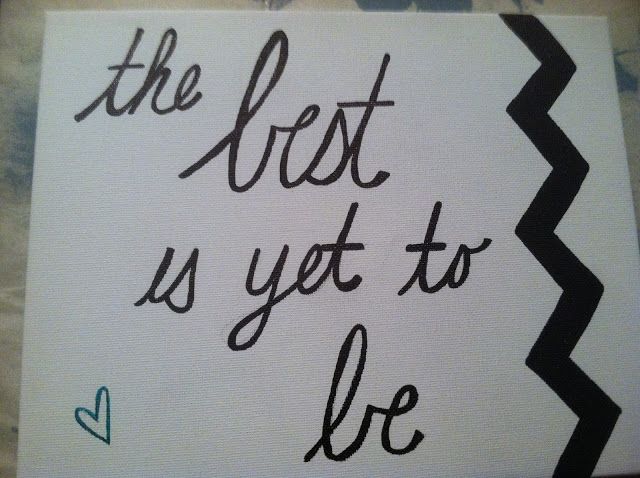 the best
is yet to
be